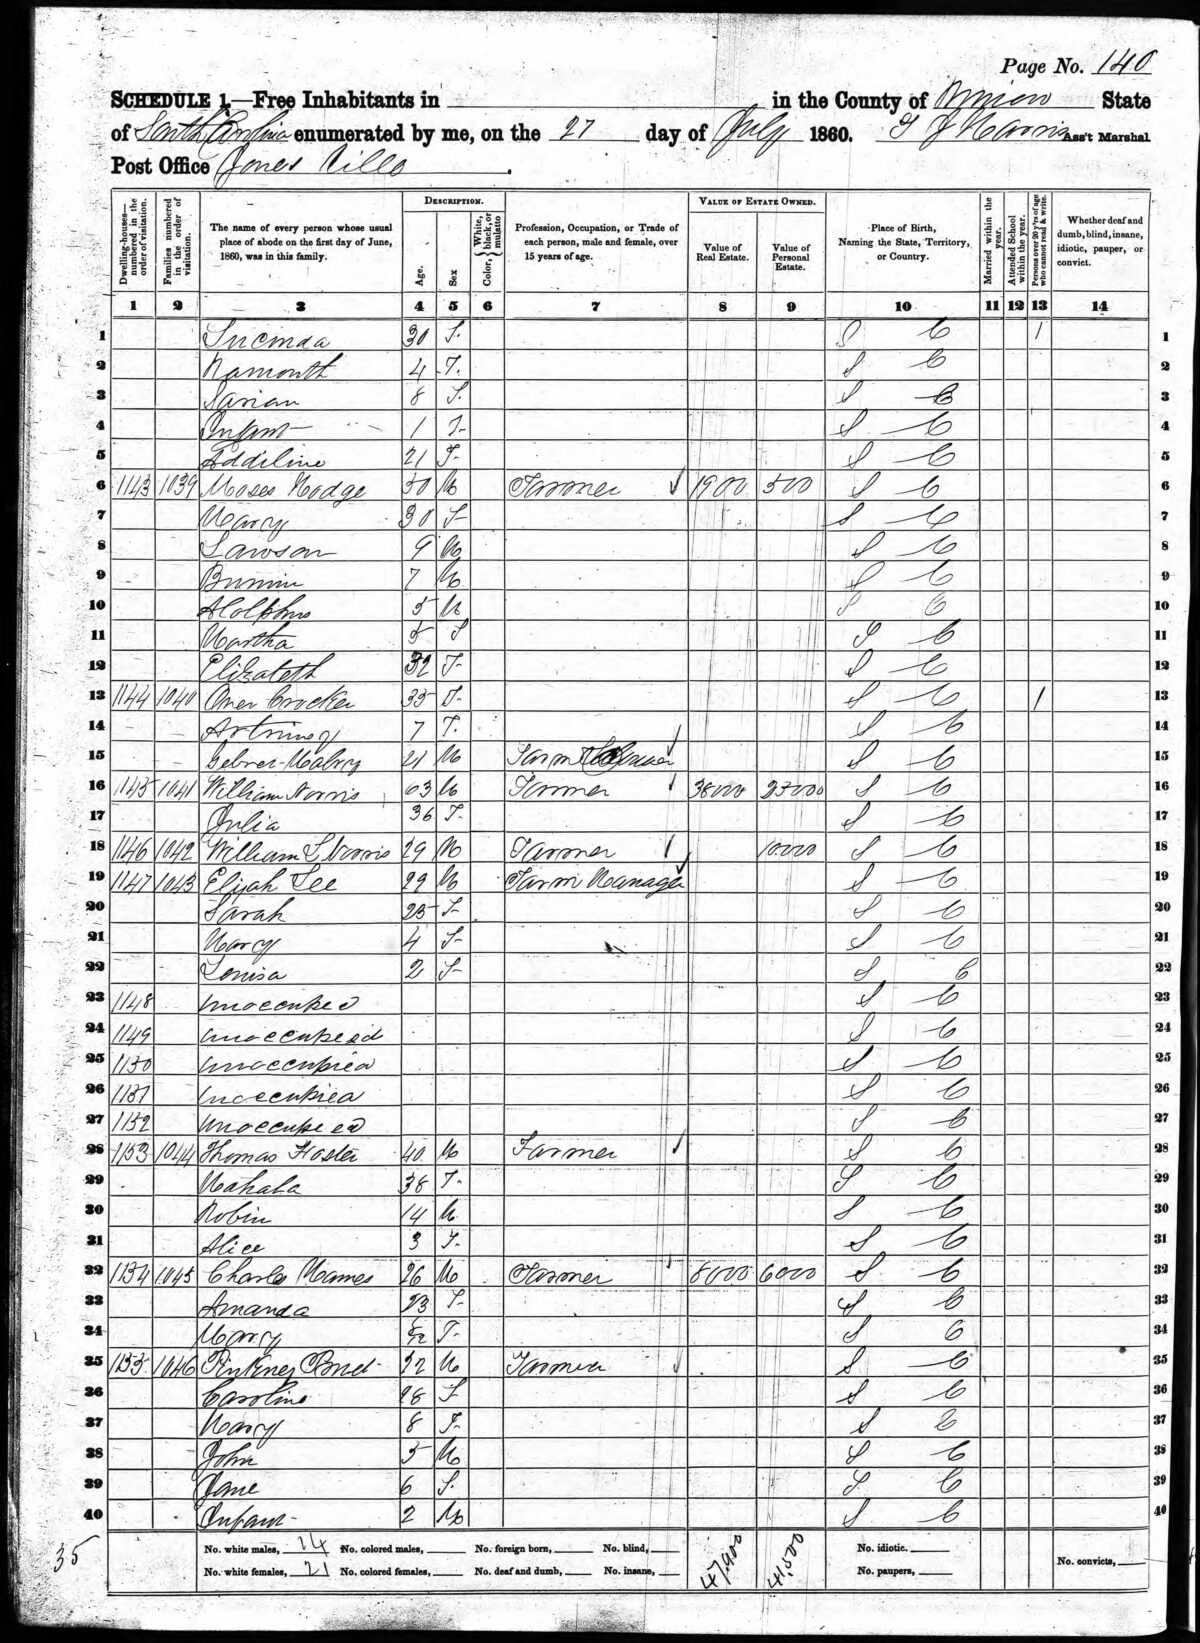 Page No. 140
SCHEDULE 1.—Free Inhabitants in in the County of Union State
of South Carolina enumerated by me, on the 27 day of July 1860. Ass't Marshal
Post Office Jones Ville .
Dwelling-houses—numbered in the order of visitation.
Families numbered in the order of visitation.
The name of every person whose usual place of abode on the first day of June, 1860, was in this family.
DESCRIPTION.
Age.
Sex
Color, {White, black, or mulatto
Profession, Occupation, or Trade of each person, male and female, over 15 years of age.
VALUE OF ESTATE OWNED.
Value of Real Estate.
Value of Personal Estate.
Place of Birth, Naming the State, Territory, or Country.
Married within the year.
Attended School within the year.
Persons over 20 y'rs of age who cannot read & write.
Whether deaf and dumb, blind, insane, idiotic, pauper, or convict.
1 2 3 4 5 6 7 8 9 10 11 12 13 14
1 Lucinda 30 F. S C 1 1
2 4 F. S C 2
3 8 F. S C 3
4 Infant 1 F S C 4
5 Addiline 21 F S C 5
6 1143 1039 Moses Hodge 50 M Farmer 1900 500 S C 6
7 Mary 30 F S C 7
8 Lawson 9 M S C 8
9 7 M S C 9
10 Adolphus 5 M S C 10
11 Martha 5 F S C 11
12 Elizabeth 32 F S C 12
13 1144 1040 Crocker 35 F. S C 1 13
14 7 F. S C 14
15 21 M Farm S C 15
16 1145 1041 William Norris 63 M Farmer 38000 23000 S C 16
17 Julia 36 F S C 17
18 1146 1042 William L Norris 29 M Farmer 10000 S C 18
19 1147 1043 Elijah Lee 29 M Farm Manager S C 19
20 Sarah 25 F S C 20
21 Mary 4 F S C 21
22 Louisa 2 F S C 22
23 1148 unoccupied S C 23
24 1149 unoccupied S C 24
25 1150 unoccupied S C 25
26 1151 unoccupied S C 26
27 1152 unoccupied S C 27
28 1153 1044 Thomas Foster 40 M Farmer S C 28
29 Mahala 38 F S C 29
30 Robin 14 M S C 30
31 Alice 3 F S C 31
32 1154 1045 Charles 26 M Farmer 8000 6000 S C 32
33 Amanda 23 F S C 33
34 Mary F S C 34
35 1155 1046 Pinkney M Farmer S C 35
36 Caroline 28 F S C 36
37 Mary 8 F S C 37
38 John 5 M S C 38
39 Jane 6 F. S C 39
40 Infant 2 M S C 40
35
No. white males, 14 No. colored males, No. foreign born, No. blind, 47,900 41,500 No. idiotic.
No. white females, 21 No. colored females, No. deaf and dumb, No. insane, No. paupers, No. convicts,